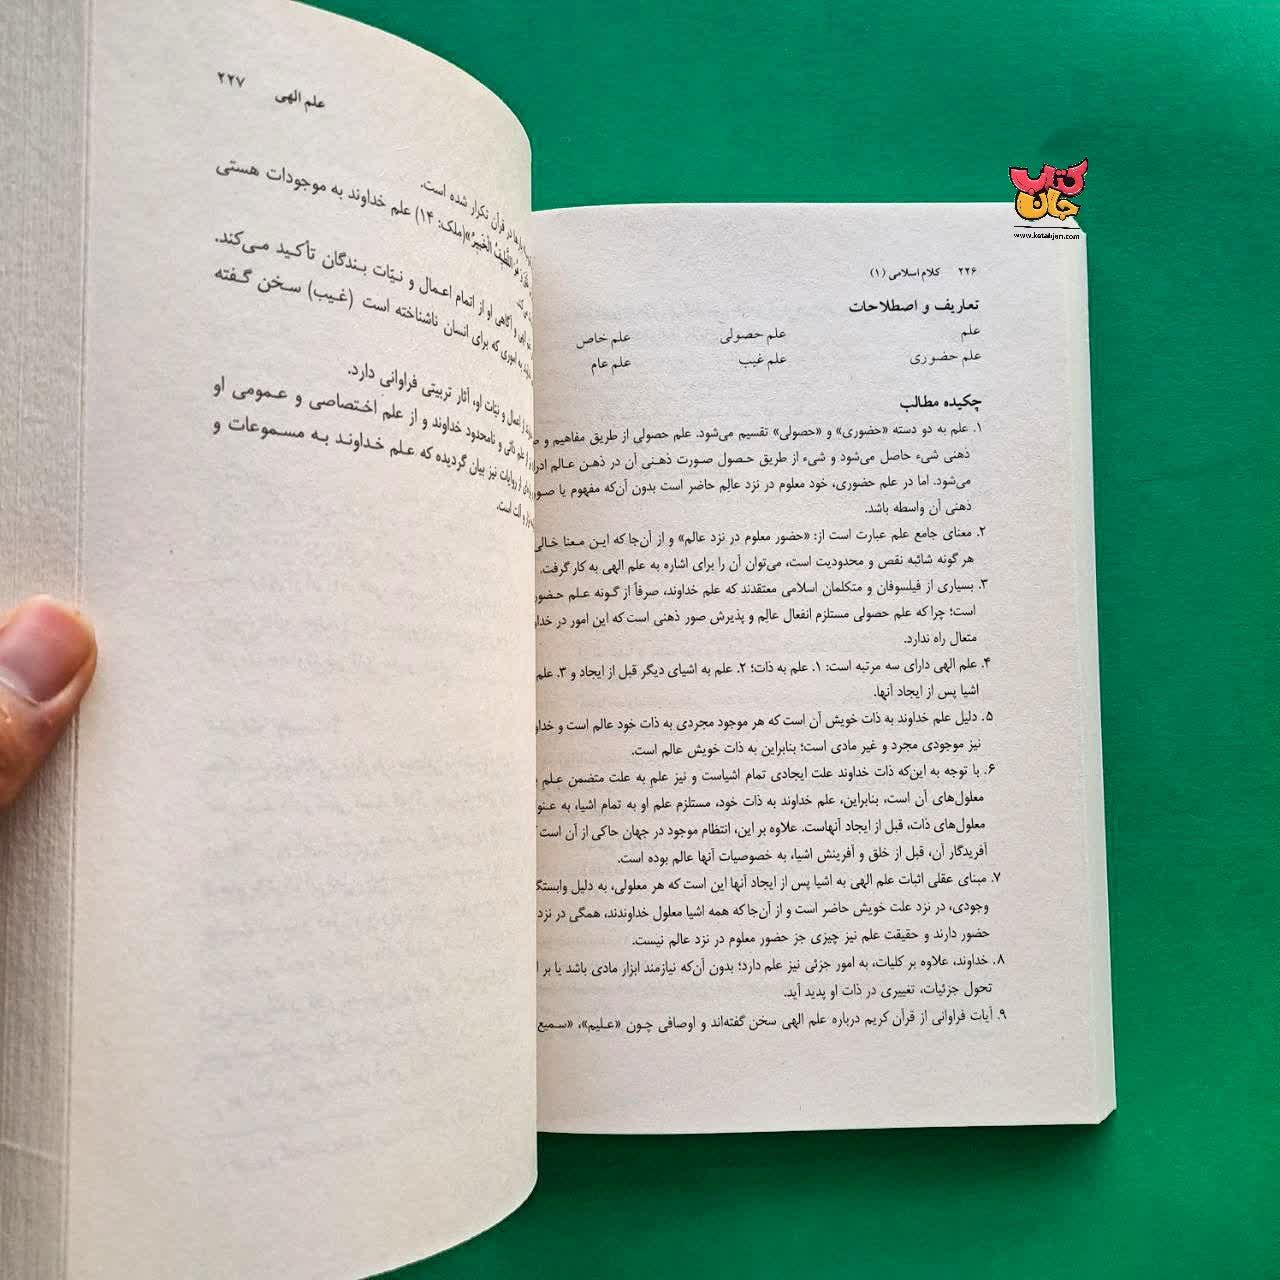 کتاب
جان
www.ketabjan.com
۲۲۶ کلام اسلامی (۱)
تعاریف و اصطلاحات
علم علم حصولی علم خاص
علم حضوری علم غیب علم عام
چکیده مطالب
۱. علم به دو دسته «حضوری» و «حصولی» تقسیم می‌شود. علم حصولی از طریق مفاهیم و
ذهنی شیء حاصل می‌شود و شیء از طریق حصول صورت ذهنی آن در ذهن عالم
می‌شود. اما در علم حضوری، خود معلوم در نزد عالِم حاضر است بدون آن‌که مفهوم یا
ذهنی آن واسطه باشد.
۲. معنای جامع علم عبارت است از: «حضور معلوم در نزد عالم» و از آن‌جا که این معنا خالی
هر گونه شائبه نقص و محدودیت است، می‌توان آن را برای اشاره به علم الهی به کار گرفت.
۳. بسیاری از فیلسوفان و متکلمان اسلامی معتقدند که علم خداوند، صرفاً از گونه علم
است؛ چرا که علم حصولی مستلزم انفعال عالِم و پذیرش صور ذهنی است که این امور در
متعال راه ندارد.
۴. علم الهی دارای سه مرتبه است: ۱. علم به ذات؛ ۲. علم به اشیای دیگر قبل از ایجاد و ۳. علم
اشیا پس از ایجاد آنها.
۵. دلیل علم خداوند به ذات خویش آن است که هر موجود مجردی به ذات خود عالم است و
نیز موجودی مجرد و غیر مادی است؛ بنابراین به ذات خویش عالم است.
۶. با توجه به این‌که ذات خداوند علت ایجادی تمام اشیاست و نیز علم به علت متضمن علم
معلول‌های آن است، بنابراین، علم خداوند به ذات خود، مستلزم علم او به تمام اشیا، به
معلول‌های ذات، قبل از ایجاد آنهاست. علاوه بر این، انتظام موجود در جهان حاکی از آن است
آفریدگار آن، قبل از خلق و آفرینش اشیا، به خصوصیات آنها عالم بوده است.
۷. مبنای عقلی اثبات علم الهی به اشیا پس از ایجاد آنها این است که هر معلولی، به دلیل
وجودی، در نزد علت خویش حاضر است و از آن‌جا که همه اشیا معلول خداوندند، همگی در نزد
حضور دارند و حقیقت علم نیز چیزی جز حضور معلوم در نزد عالم نیست.
۸. خداوند، علاوه بر کلیات، به امور جزئی نیز علم دارد؛ بدون آن‌که نیازمند ابزار مادی باشد یا بر
تحول جزئیات، تغییری در ذات او پدید آید.
۹. آیات فراوانی از قرآن کریم درباره علم الهی سخن گفته‌اند و اوصافی چون «علیم»، «سمیع
علم الهی ۲۲۷
در قرآن تکرار شده است.
هو اللطیف الخبیر» (ملک: ۱۴) علم خداوند به موجودات هستی
و آگاهی او از اتمام اعمال و نیّات بندگان تأکید می‌کند.
به اموری که برای انسان ناشناخته است (غیب) سخن گفته
اعمال و نیّات او، آثار تربیتی فراوانی دارد.
ذاتی و نامحدود خداوند و از علم اختصاصی و عمومی او
از روایات نیز بیان گردیده که علم خداوند به مسموعات و
و آلت است.